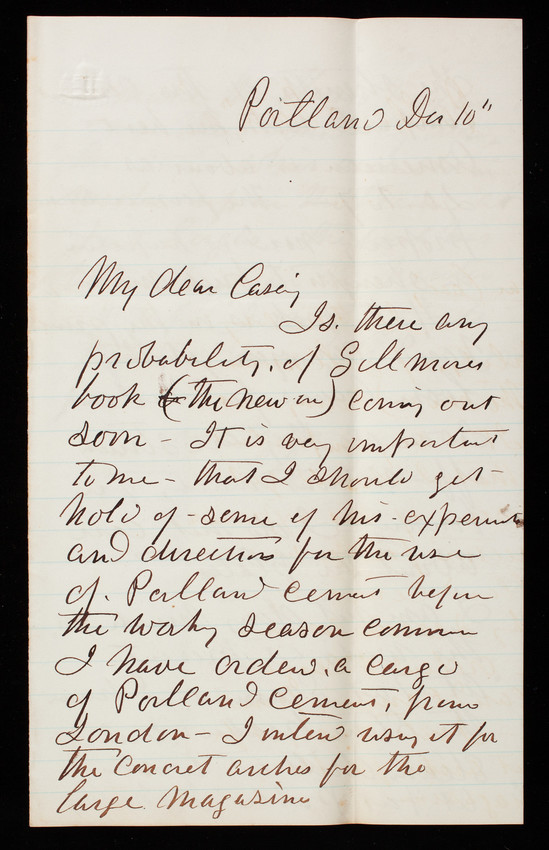 Portland Dec 10"
My dear Casey
Is. there any
probability. of Gillmores
book (the new one) coming out
soon - It is very important
to me - that I should get
hold of - some of his - experiments
and directions for the use
of. Portland cement before
the working season commence
I have ordered. a cargo
of Portland Cement, from
London - I intend using it for
the concrete arches for the
large magazine